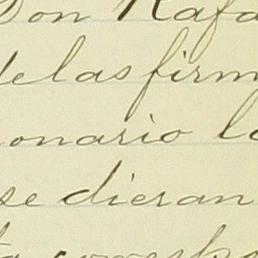 Don Rafa
de las firm
onario lo
se dieran